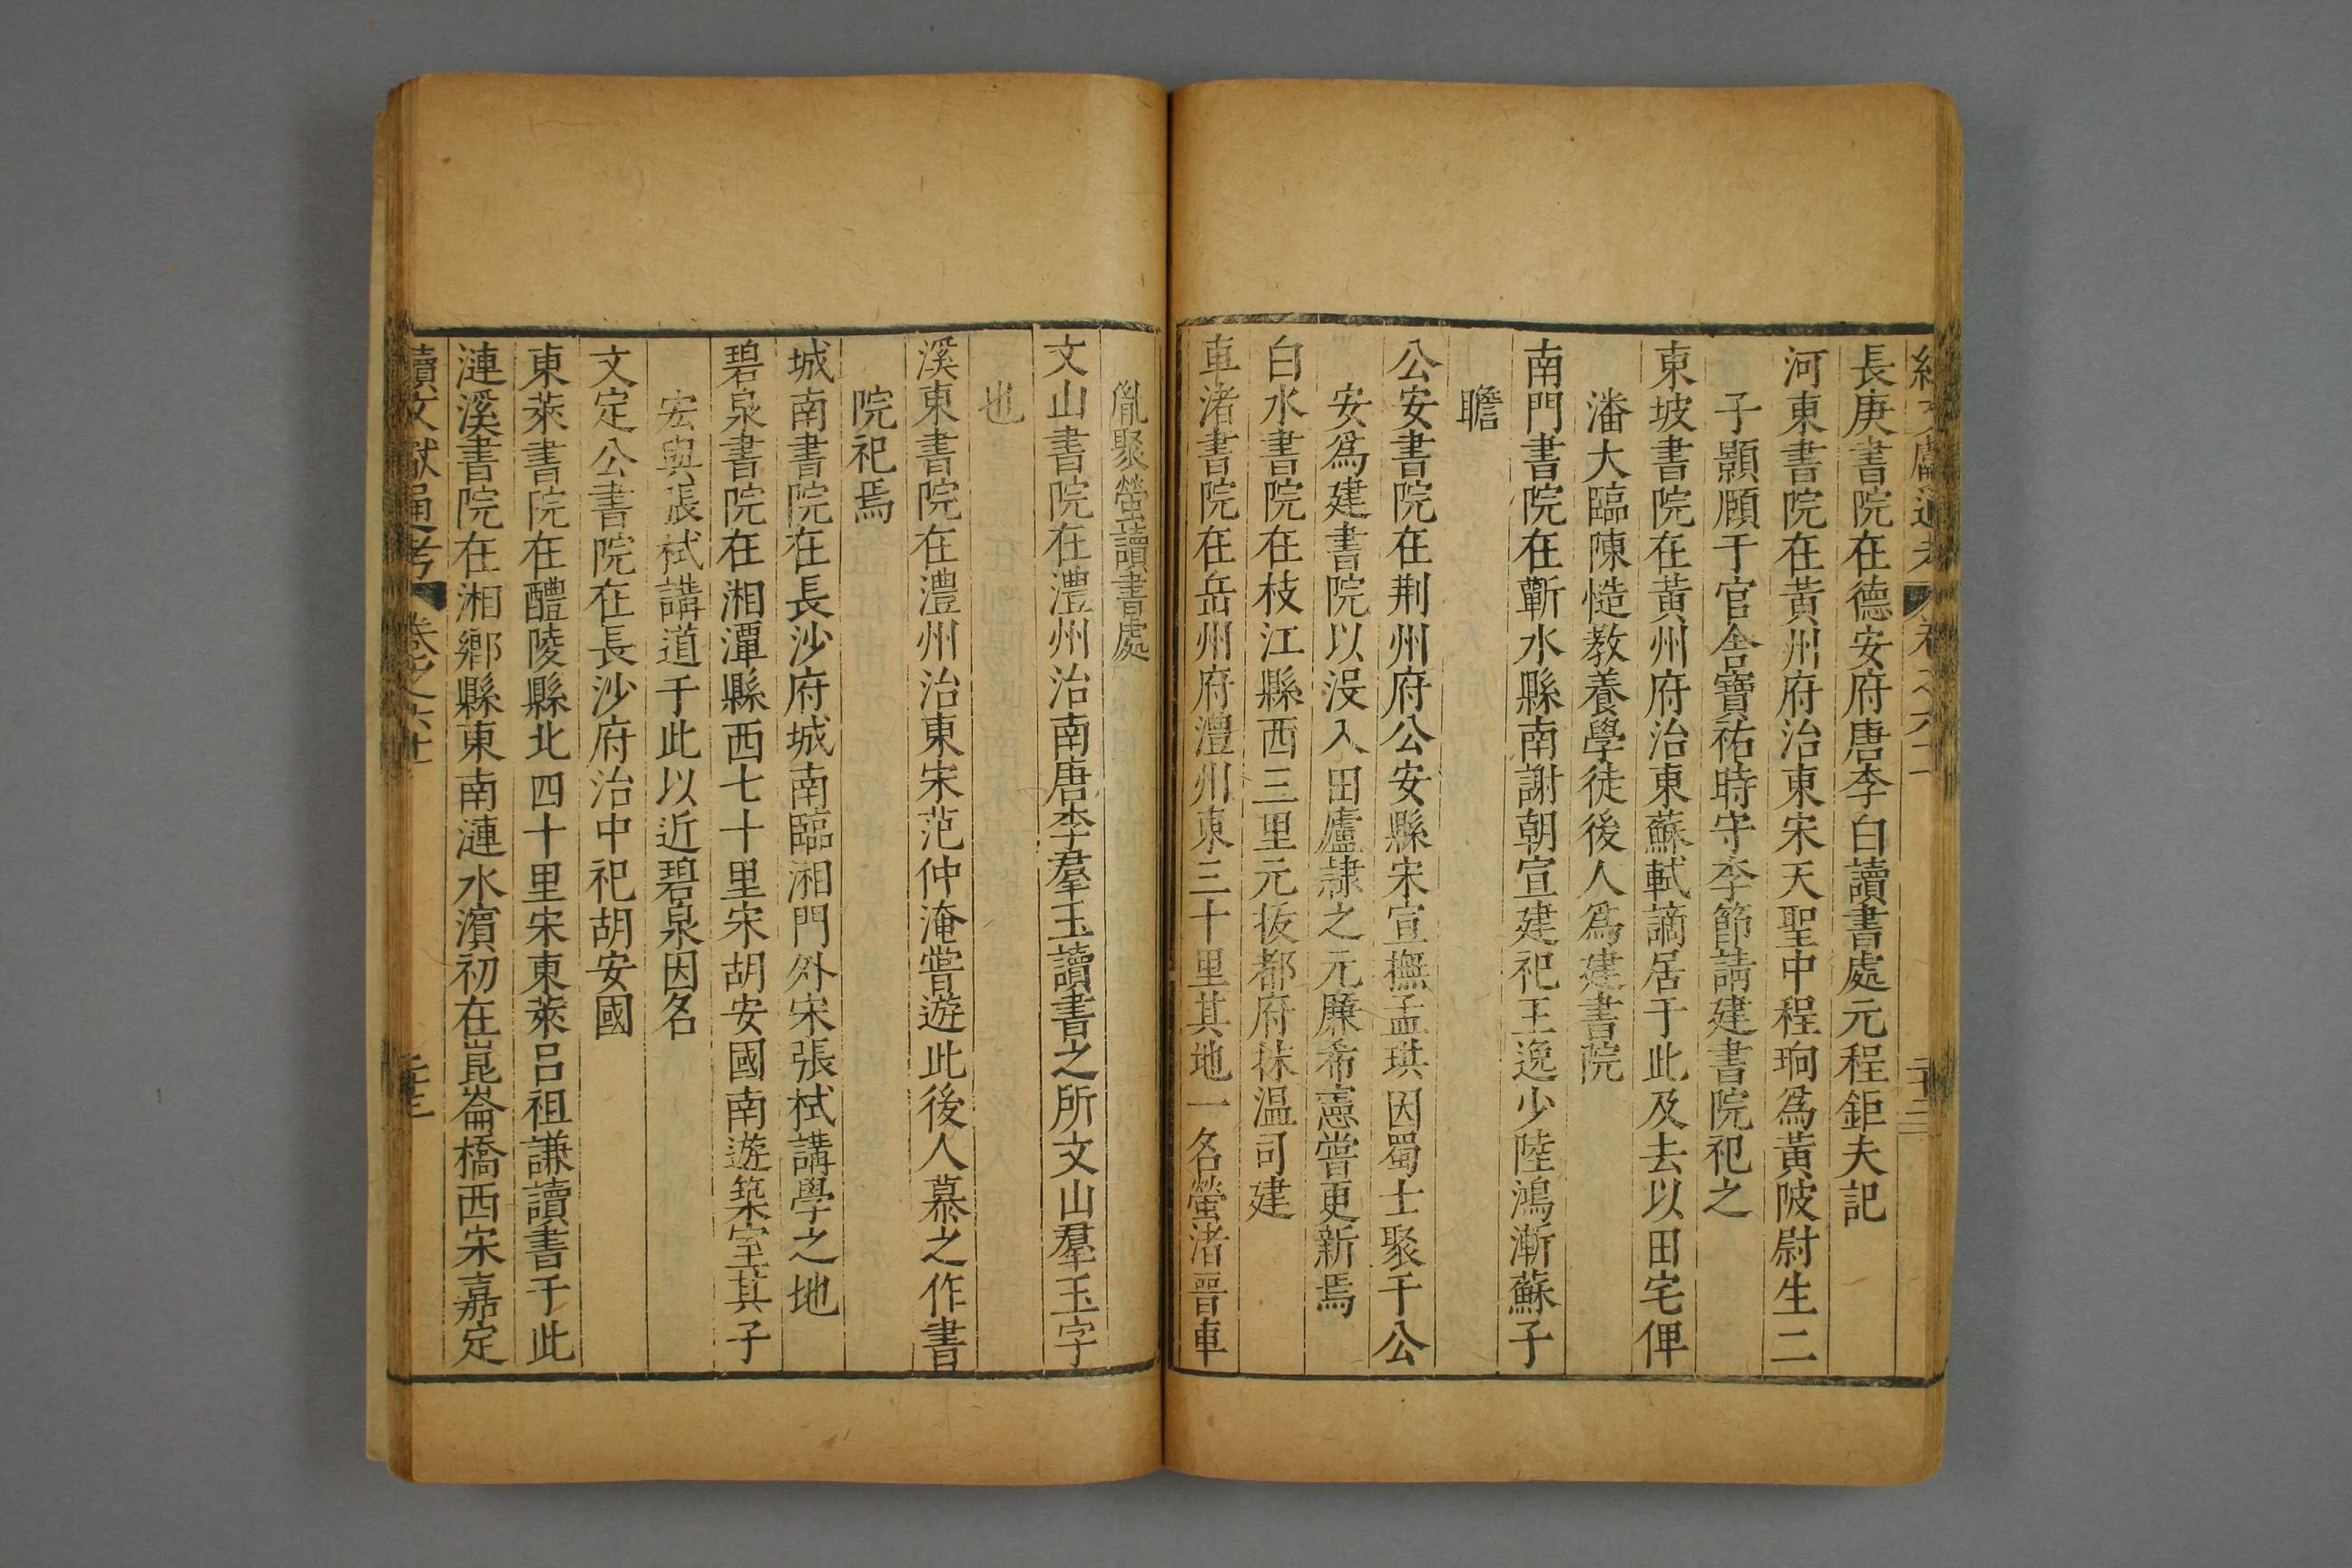 長庚書院在德安府唐李白讀書處元程鉅夫記
河東書院在黃州府治東宋天聖中程珦爲黃陂尉生二
子顥頤于官舍寶祐時守李節請建書院祀之
東坡書院在黃州府治東蘇軾謫居于此及去以田宅俾
潘大臨陳慥教養學徒後人爲建書院
南門書院在蘄水縣南謝朝宣建祀王逸少陸鴻漸蘇子
瞻
公安書院在荆州府公安縣宋宣撫孟珙因蜀士聚于公
安爲建書院以没入田廬隷之元廉希憲嘗更新焉
白水書院在枝江縣西三里元拔都府抹温司建
車渚書院在岳州府澧州東三十里其地一名螢渚晋車
胤聚螢讀書處
文山書院在澧州治南唐李羣玉讀書之所文山羣玉字
也
溪東書院在澧州治東宋范仲淹嘗遊此後人慕之作書
院祀焉
城南書院在長沙府城南臨湘門外宋張栻講學之地
碧泉書院在湘潭縣西七十里宋胡安國南遊築室其子
宏與張栻講道于此以近碧泉因名
文定公書院在長沙府治中祀胡安國
東萊書院在醴陵縣北四十里宋東萊呂祖謙讀書于此
漣溪書院在湘鄉縣東南漣水濱初在崑崙橋西宋嘉定
續文獻通考 卷之六十